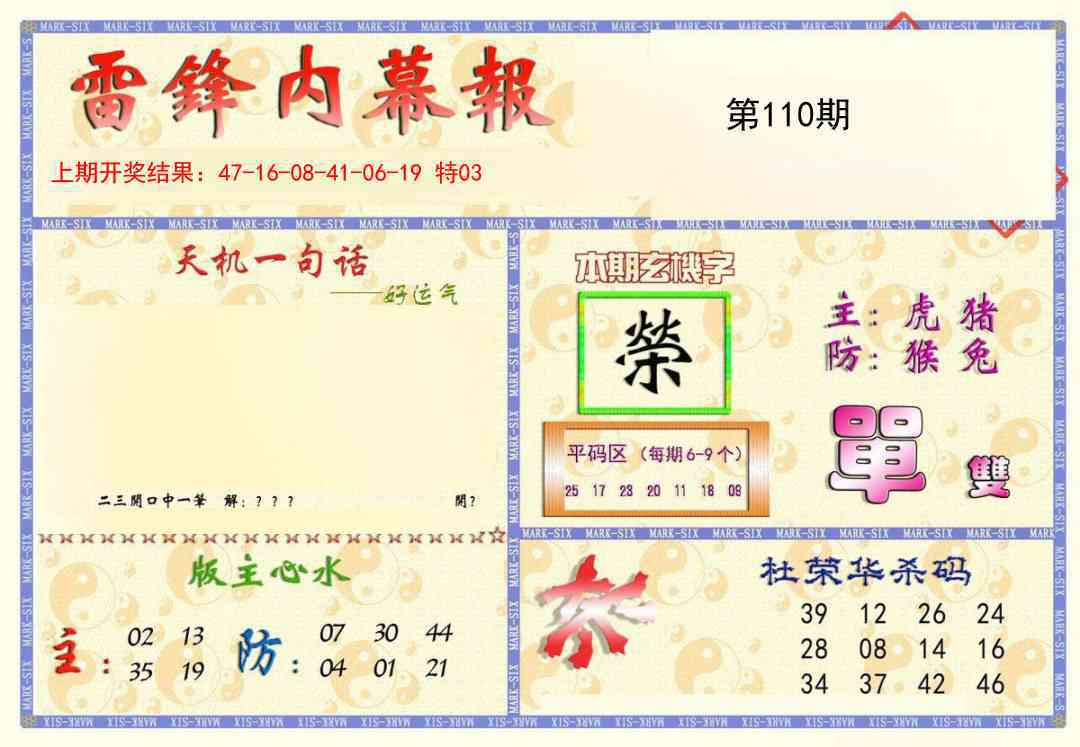 雷鋒内幕報
第110期
上期开奖结果：47-16-08-41-06-19 特03
天机一句话
——好运气
二三開口中一筆 解：？？？ 開？
本期玄機字
榮
主：虎 猪
防：猴 兔
平码区（每期6-9个）
25 17 23 20 11 18 09
單 雙
版主心水
主： 02 13 35 19
防： 07 30 44 04 01 21
杀
杜荣华杀码
39 12 26 24
28 08 14 16
34 37 42 46
MARK-SIX